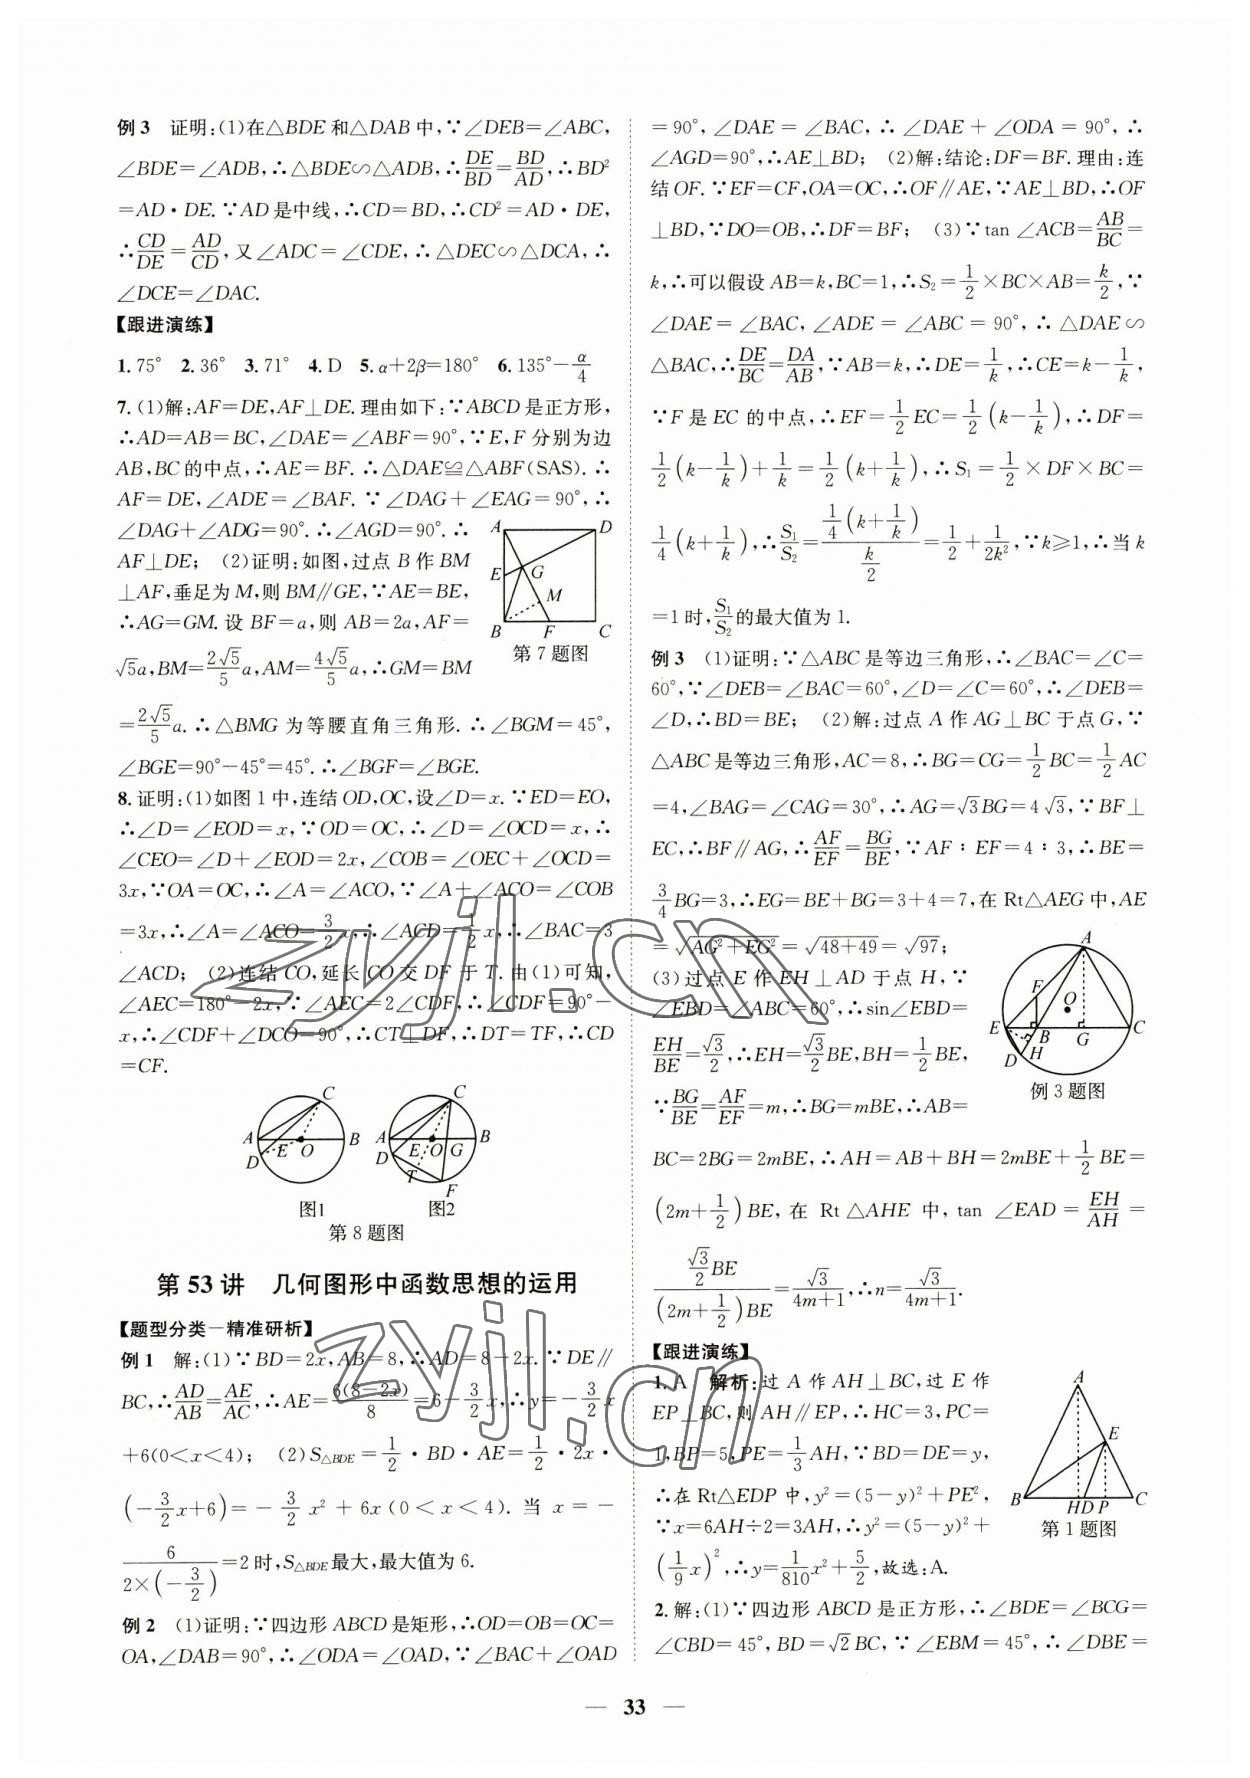 例 3 证明:(1)在△BDE 和△DAB 中,∵∠DEB=∠ABC,
∠BDE=∠ADB,∴△BDE∽△ADB,∴DE/BD=BD/AD,∴BD²
=AD·DE.∵AD 是中线,∴CD=BD,∴CD²=AD·DE,
∴CD/DE=AD/CD,又∠ADC=∠CDE,∴△DEC∽△DCA,∴
∠DCE=∠DAC.
【跟进演练】
1.75° 2.36° 3.71° 4.D 5.α+2β=180° 6.135°-α/4
7.(1)解:AF=DE,AF⊥DE.理由如下:∵ABCD 是正方形,
∴AD=AB=BC,∠DAE=∠ABF=90°,∵E,F 分别为边
AB,BC 的中点,∴AE=BF.∴△DAE≌△ABF(SAS).∴
AF=DE,∠ADE=∠BAF.∵∠DAG+∠EAG=90°,∴
∠DAG+∠ADG=90°.∴∠AGD=90°.∴
AF⊥DE; (2)证明:如图,过点 B 作 BM
⊥AF,垂足为 M,则 BM∥GE,∵AE=BE,
∴AG=GM.设 BF=a,则 AB=2a,AF=
√5a,BM=2√5/5a,AM=4√5/5a,∴GM=BM
A D E G M B F C
第 7 题图
=2√5/5a.∴△BMG 为等腰直角三角形.∴∠BGM=45°,
∠BGE=90°-45°=45°.∴∠BGF=∠BGE.
8.证明:(1)如图 1 中,连结 OD,OC,设∠D=x.∵ED=EO,
∴∠D=∠EOD=x,∵OD=OC,∴∠D=∠OCD=x,∴
∠CEO=∠D+∠EOD=2x,∠COB=∠OEC+∠OCD=
3x,∵OA=OC,∴∠A=∠ACO,∵∠A+∠ACO=∠COB
=3x,∴∠A=∠ACO=3/2x,∴∠ACD=1/2x,∴∠BAC=3
∠ACD; (2)连结 CO,延长 CO 交 DF 于 T.由(1)可知,
∠AEC=180°-2x,∵∠AEC=2∠CDF,∴∠CDF=90°-
x,∴∠CDF+∠DCO=90°,∴CT⊥DF,∴DT=TF,∴CD
=CF.
A B C D E O
A B C D E O G T F
图1 图2
第 8 题图
第 53 讲 几何图形中函数思想的运用
【题型分类—精准研析】
例 1 解:(1)∵BD=2x,AB=8,∴AD=8-2x.∵DE∥
BC,∴AD/AB=AE/AC,∴AE=6(8-2x)/8=6-3/2x,∴y=-3/2x
+6(0<x<4); (2)S△BDE=1/2·BD·AE=1/2·2x·
(-3/2x+6)=-3/2x²+6x(0<x<4).当 x=-
6/(2×(-3/2))=2时,S△BDE最大,最大值为 6.
例 2 (1)证明:∵四边形 ABCD 是矩形,∴OD=OB=OC=
OA,∠DAB=90°,∴∠ODA=∠OAD,∵∠BAC+∠OAD
=90°,∠DAE=∠BAC,∴∠DAE+∠ODA=90°,∴
∠AGD=90°,∴AE⊥BD; (2)解:结论:DF=BF.理由:连
结 OF.∵EF=CF,OA=OC,∴OF∥AE,∵AE⊥BD,∴OF
⊥BD,∵DO=OB,∴DF=BF; (3)∵tan∠ACB=AB/BC=
k,∴可以假设 AB=k,BC=1,∴S₂=1/2×BC×AB=k/2,∵
∠DAE=∠BAC,∠ADE=∠ABC=90°,∴△DAE∽
△BAC,∴DE/BC=DA/AB,∵AB=k,∴DE=1/k,∴CE=k-1/k,
∵F 是 EC 的中点,∴EF=1/2EC=1/2(k-1/k),∴DF=
1/2(k-1/k)+1/k=1/2(k+1/k),∴S₁=1/2×DF×BC=
1/4(k+1/k),∴S₁/S₂=(1/4(k+1/k))/(k/2)=1/2+1/2k²,∵k≥1,∴当 k
=1 时,S₁/S₂的最大值为 1.
例 3 (1)证明:∵△ABC 是等边三角形,∴∠BAC=∠C=
60°,∵∠DEB=∠BAC=60°,∠D=∠C=60°,∴∠DEB=
∠D,∴BD=BE; (2)解:过点 A 作 AG⊥BC 于点 G,∵
△ABC 是等边三角形,AC=8,∴BG=CG=1/2BC=1/2AC
=4,∠BAG=∠CAG=30°,∴AG=√3BG=4√3,∵BF⊥
EC,∴BF∥AG,∴AF/EF=BG/BE,∵AF∶EF=4∶3,∴BE=
3/4BG=3,∴EG=BE+BG=3+4=7,在 Rt△AEG 中,AE
=√(AG²+EG²)=√(48+49)=√97;
(3)过点 E 作 EH⊥AD 于点 H,∵
∠EBD=∠ABC=60°,∴sin∠EBD=
EH/BE=√3/2,∴EH=√3/2BE,BH=1/2BE,
∵BG/BE=AF/EF=m,∴BG=mBE,∴AB=
A F O E B G C D H
例 3 题图
BC=2BG=2mBE,∴AH=AB+BH=2mBE+1/2BE=
(2m+1/2)BE,在 Rt△AHE 中,tan∠EAD=EH/AH=
(√3/2BE)/((2m+1/2)BE)=√3/(4m+1),∴n=√3/(4m+1).
【跟进演练】
1.A 解析:过 A 作 AH⊥BC,过 E 作
EP⊥BC,则 AH∥EP,∴HC=3,PC=
1,BP=5,PE=1/3AH,∵BD=DE=y,
∴在 Rt△EDP 中,y²=(5-y)²+PE²,
∵x=6AH÷2=3AH,∴y²=(5-y)²+
(1/9x)²,∴y=1/810x²+5/2,故选:A.
A E B H D P C
第 1 题图
2.解:(1)∵四边形 ABCD 是正方形,∴∠BDE=∠BCG=
∠CBD=45°,BD=√2BC,∵∠EBM=45°,∴∠DBE=
— 33 —
zyjl.cn
zyjl.cn